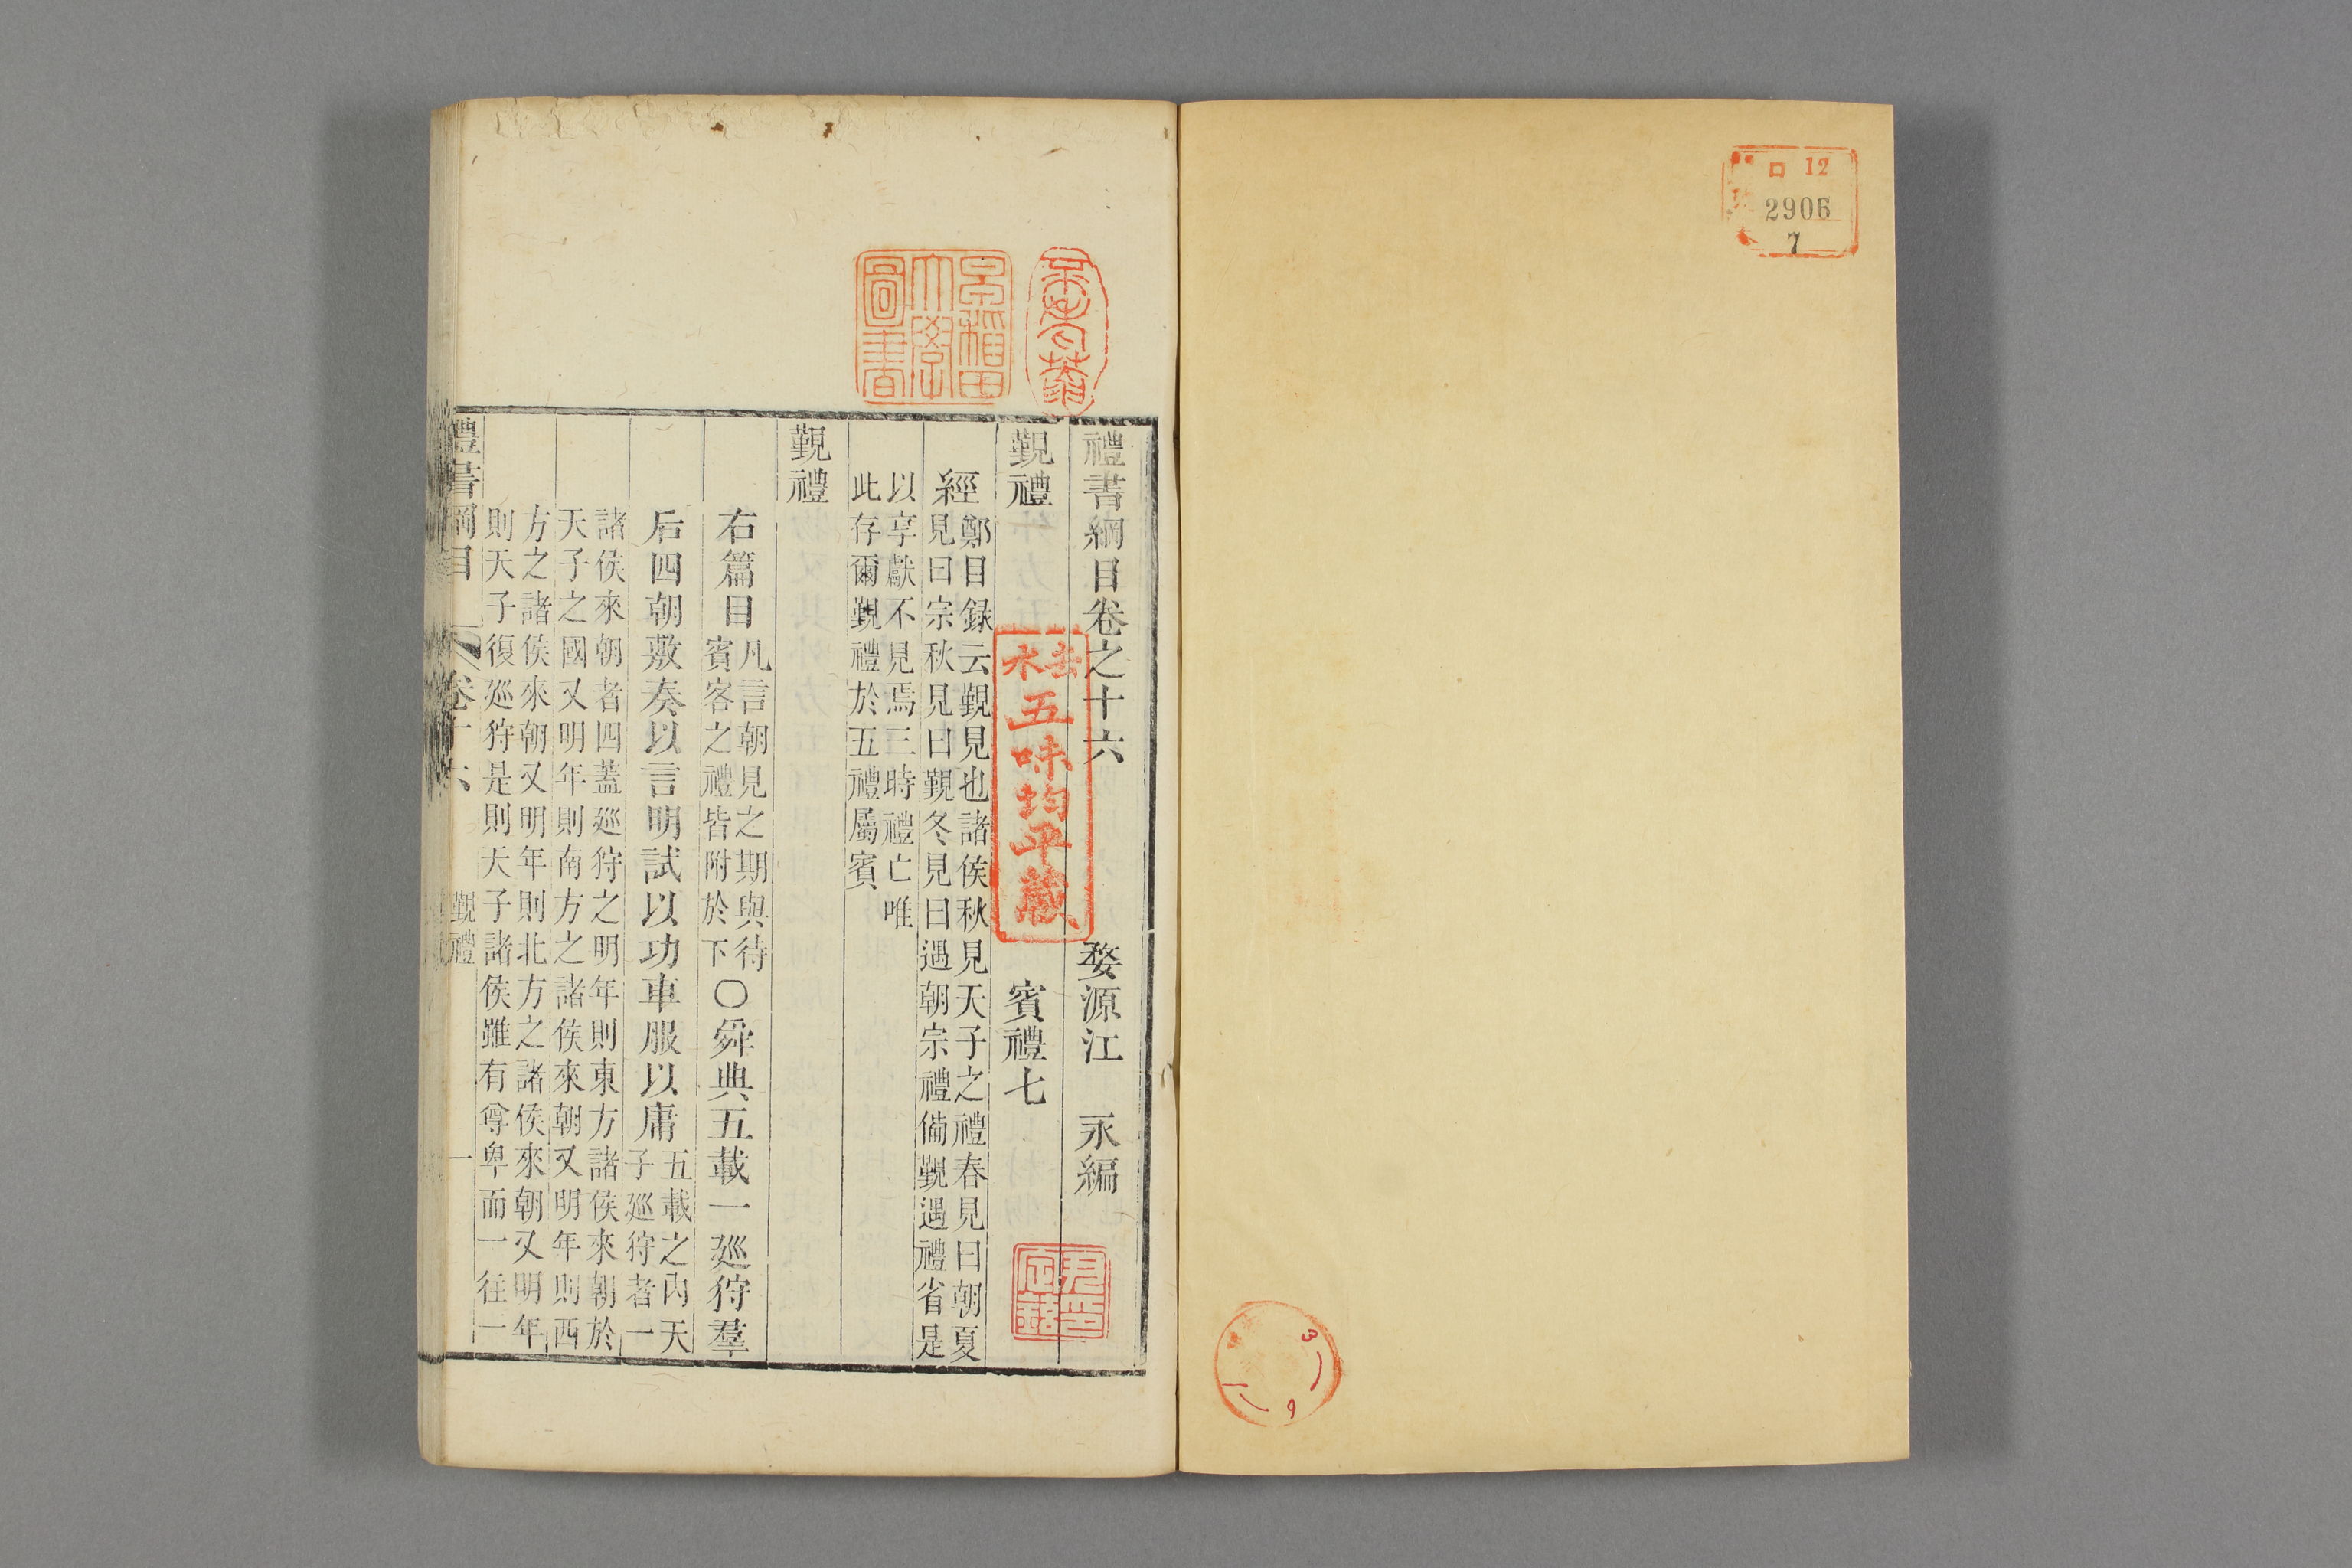 口 12
2906
7
3
9
早稲田大學圖書
五味均平藏
禮書綱目卷之十六　婺源江　永編
覲禮　賓禮七
經鄭目録云覲見也諸侯秋見天子之禮春見曰朝夏
見曰宗秋見曰覲冬見曰遇朝宗禮備覲遇禮省是
以享獻不見焉三時禮亡唯
此存爾覲禮於五禮屬賓
覲禮
右篇目凡言朝見之期與待
賓客之禮皆附於下〇舜典五載一廵狩羣
后四朝敷奏以言明試以功車服以庸五載之內天
子廵狩者一
諸侯來朝者四蓋廵狩之明年則東方諸侯來朝於
天子之國又明年則南方之諸侯來朝又明年則西
方之諸侯來朝又明年則北方之諸侯來朝又明年
則天子復廵狩是則天子諸侯雖有尊卑而一往一
禮書綱目　卷十六　覲禮　一